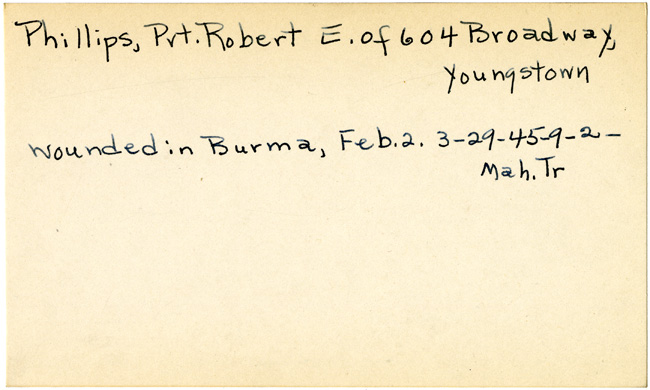 Phillips, Pvt. Robert E. of 604 Broadway,
Youngstown
wounded in Burma, Feb. 2. 3-29-45-9-2-
Mah. Tr